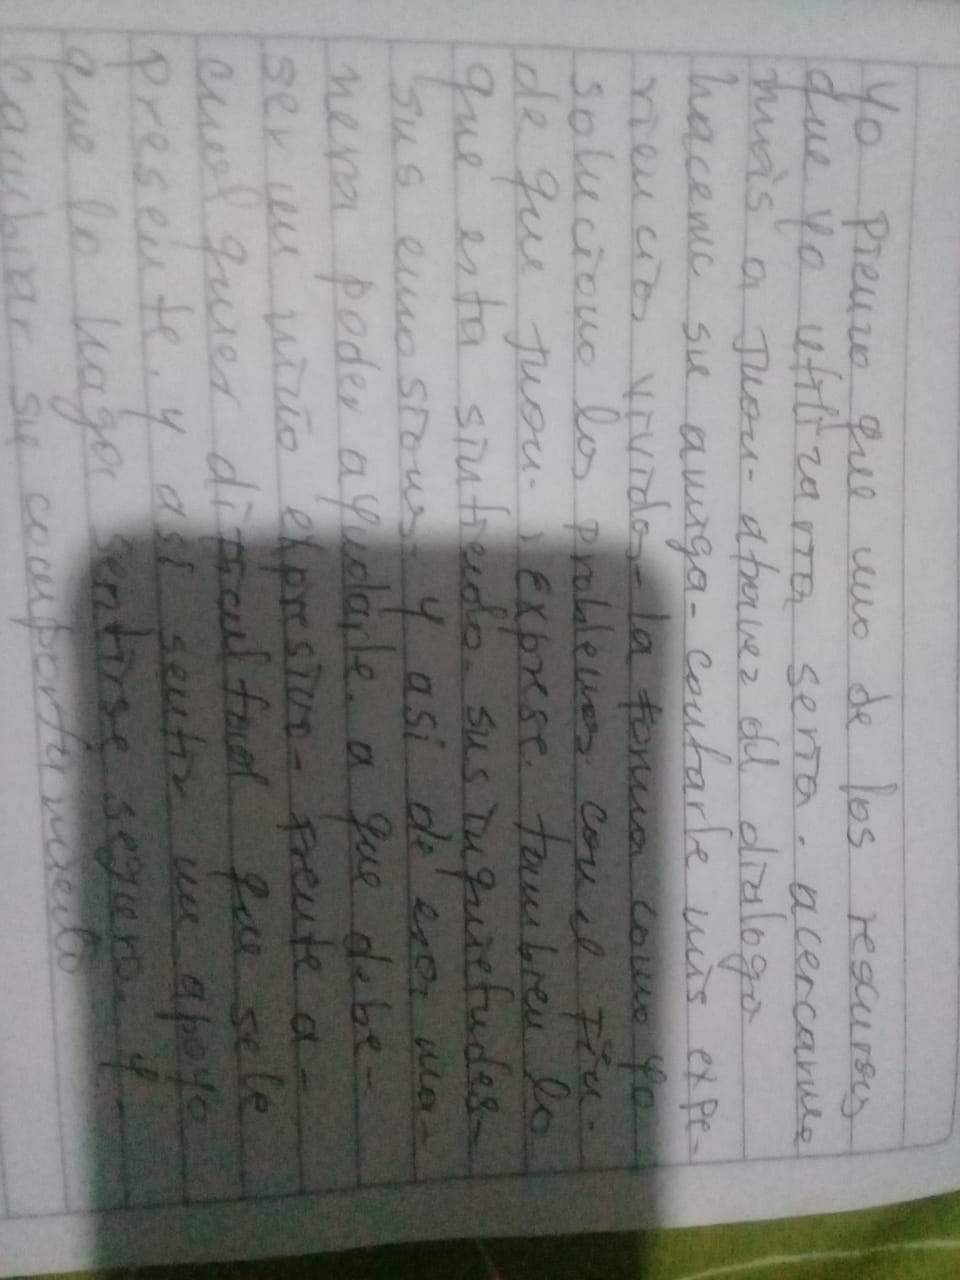 Yo Pienso que uno de los recursos
que yo utilizarra serra. acercarme
más a Juan- atravez del dialogo
hacerme su amiga- contarle mis expe-
riencias vividas- la forma como yo
soluciono los problemas. con el fin-
de que Juan. exprese. tambien lo
que esta sintiendo. sus inquietudes-
sus emosiones- y asi de esa ma-
nera poder ayudarle. a que debe-
ser un niño expresivo- frente a-
cualquier dificultad que se le
presente. y asi sentir un apoyo
que lo haga sentirse seguro. y-
cambiar su comportamiento